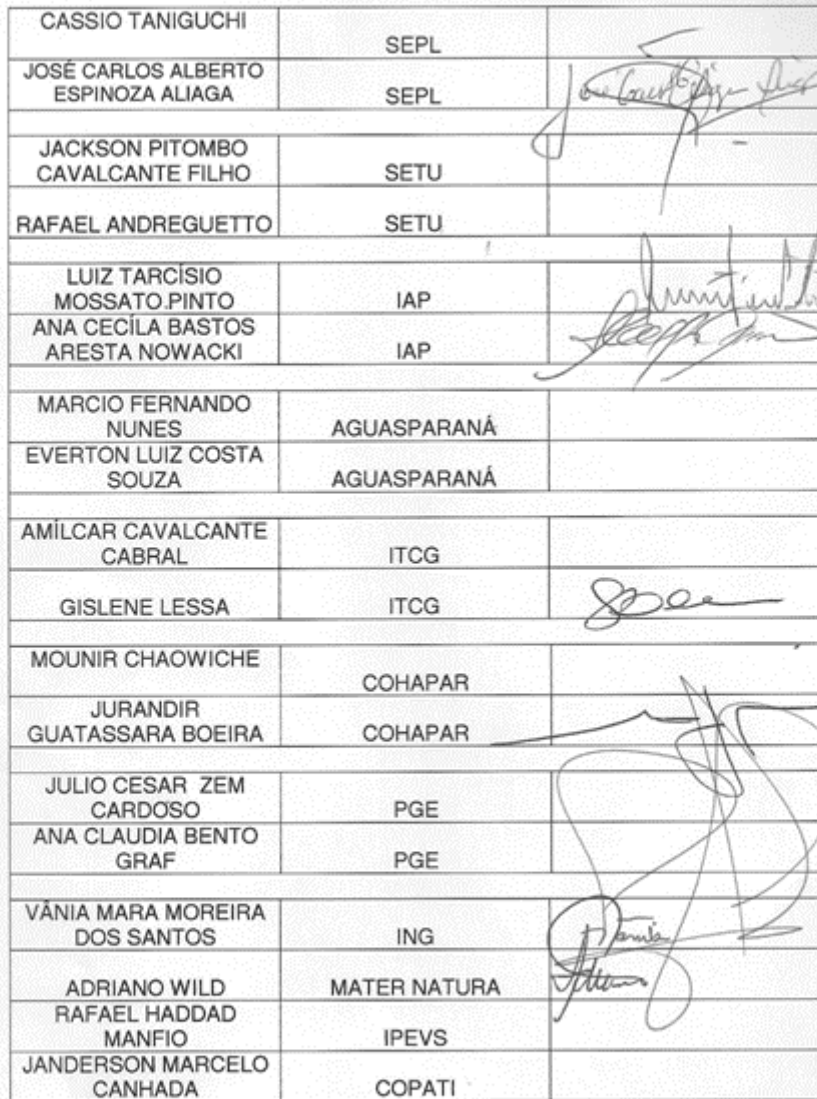 CASSIO TANIGUCHI
SEPL
JOSÉ CARLOS ALBERTO
ESPINOZA ALIAGA SEPL
JACKSON PITOMBO
CAVALCANTE FILHO SETU
RAFAEL ANDREGUETTO SETU
LUIZ TARCÍSIO
MOSSATO PINTO IAP
ANA CECÍLA BASTOS
ARESTA NOWACKI IAP
MARCIO FERNANDO
NUNES AGUASPARANÁ
EVERTON LUIZ COSTA
SOUZA AGUASPARANÁ
AMÍLCAR CAVALCANTE
CABRAL ITCG
GISLENE LESSA ITCG
MOUNIR CHAOWICHE
COHAPAR
JURANDIR
GUATASSARA BOEIRA COHAPAR
JULIO CESAR ZEM
CARDOSO PGE
ANA CLAUDIA BENTO
GRAF PGE
VÂNIA MARA MOREIRA
DOS SANTOS ING
Vania
ADRIANO WILD MATER NATURA
RAFAEL HADDAD
MANFIO IPEVS
JANDERSON MARCELO
CANHADA COPATI